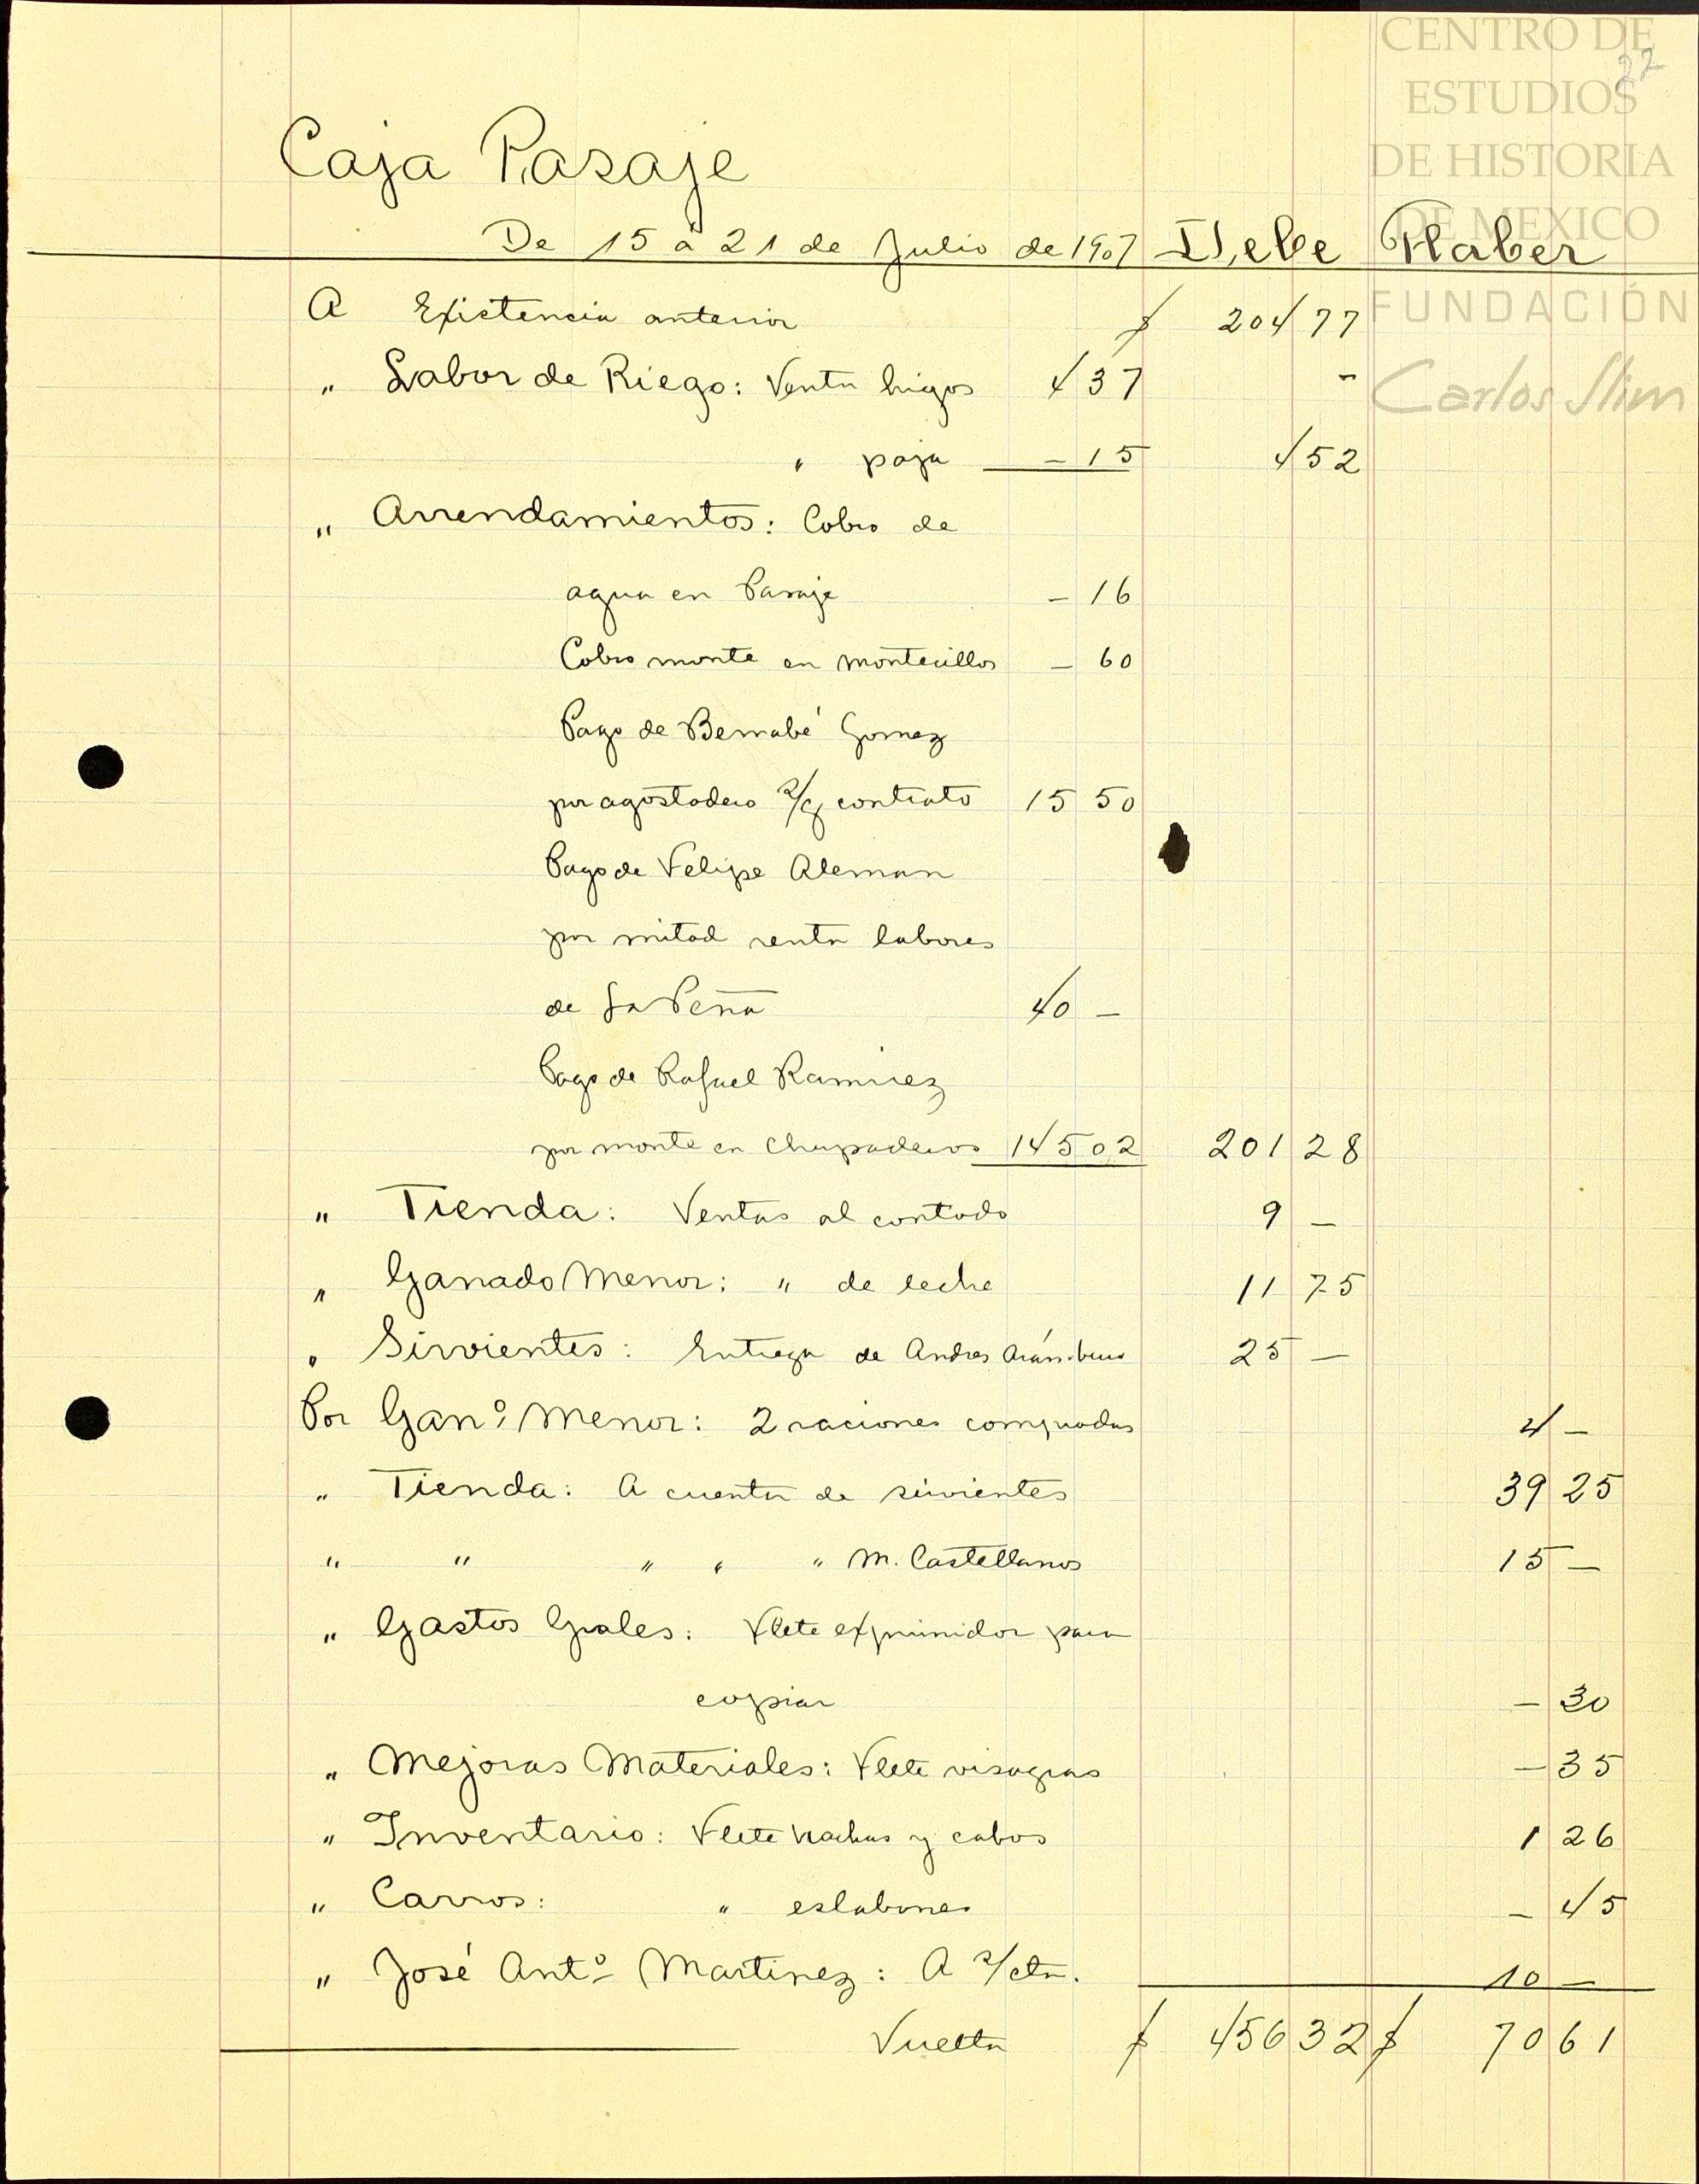 CENTRO DE
ESTUDIOS
DE HISTORIA
DE MEXICO
FUNDACIÓN
Carlos Slim
22
Caja Pasaje
De 15 á 21 de Julio de 1907 Debe Haber
A Existencia anterior $ 204 77
" Labor de Riego: Venta higos 4 37 -
" paja - 15 4 52
" Arrendamientos: Cobro de
agua en Pasaje - 16
Cobro monte en Montecillos - 60
Pago de Bernabé Gomez
por agostadero s/g contrato 15 50
Pago de Felipe Aleman
por mitad renta labores
de La Peña 40 -
Pago de Rafael Ramirez
por monte en Chupaderos 145 02 201 28
" Tienda: Ventas al contado 9 -
" Ganado Menor: " de leche 11 75
" Sirvientes: Entrega de Andres Arámbula 25 -
Por Gan.º Menor: 2 raciones compradas 4 -
" Tienda: A cuenta de sirvientes 39 25
" " " " " M. Castellanos 15 -
" Gastos Grales: Flete exprimidor para
copiar - 30
" Mejoras Materiales: Flete visagras - 35
" Inventario: Flete hachas y cabos 1 26
" Carros: " eslabones - 45
" José Ant.º Martinez: A s/cta. 10 -
Vuelta $ 456 32 $ 70 61